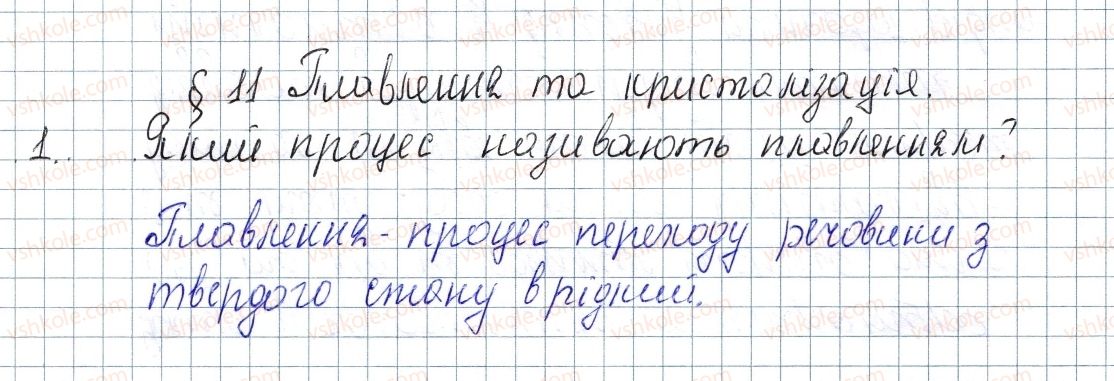 § 11 Плавлення та кристалізація.
1. Який процес називають плавленням?
Плавлення - процес переходу речовини з
твердого стану в рідкий.